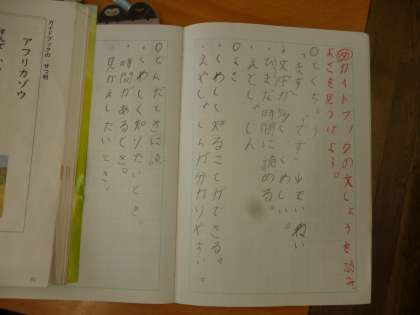 めガイドブックの文しょうを読み、
よさを見つけよう。
○とくちょう
・ます。です。ていねい
・文体が多く、くわしい。
・ひまな時間に読める。
・えと、しゃしん
○よさ
・くわしく知ることができる。
・えやしゃしんが分かりやすい。
○どんなときに読
・くわしく知りたいとき。
・時間があるとき。
・見がえしたいとき。
ガイドブックの せつ明
アフリカゾウ